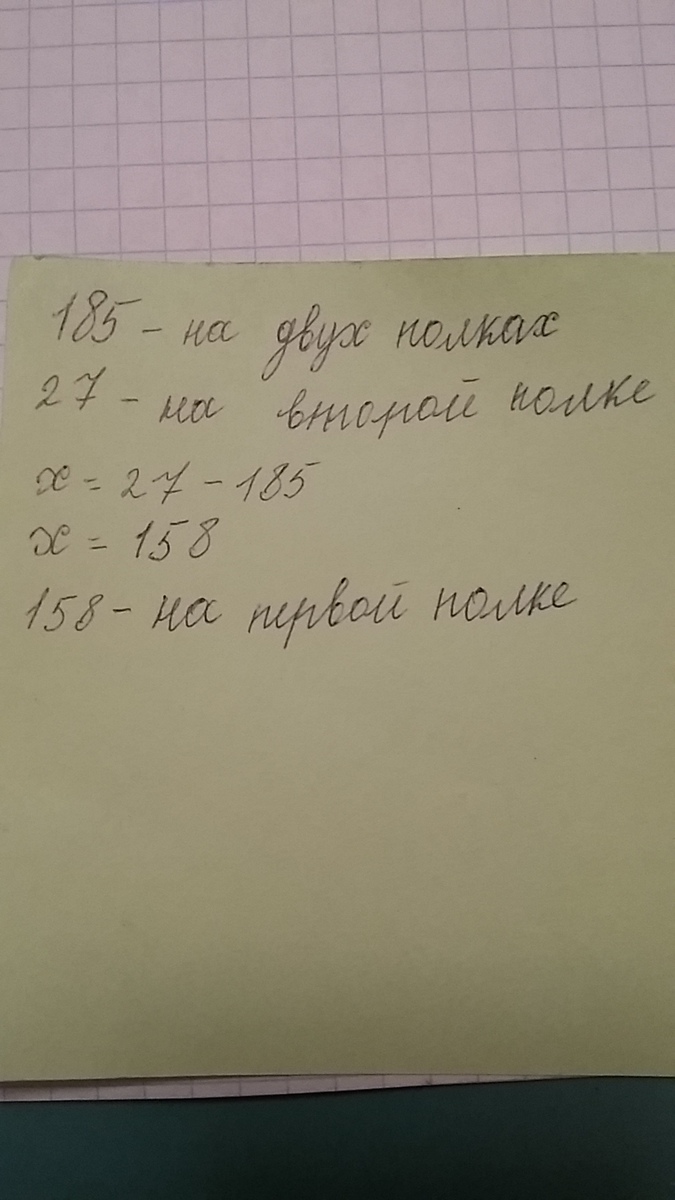 185 - на двух полках
27 - на второй полке
x = 27 - 185
x = 158
158 - на первой полке